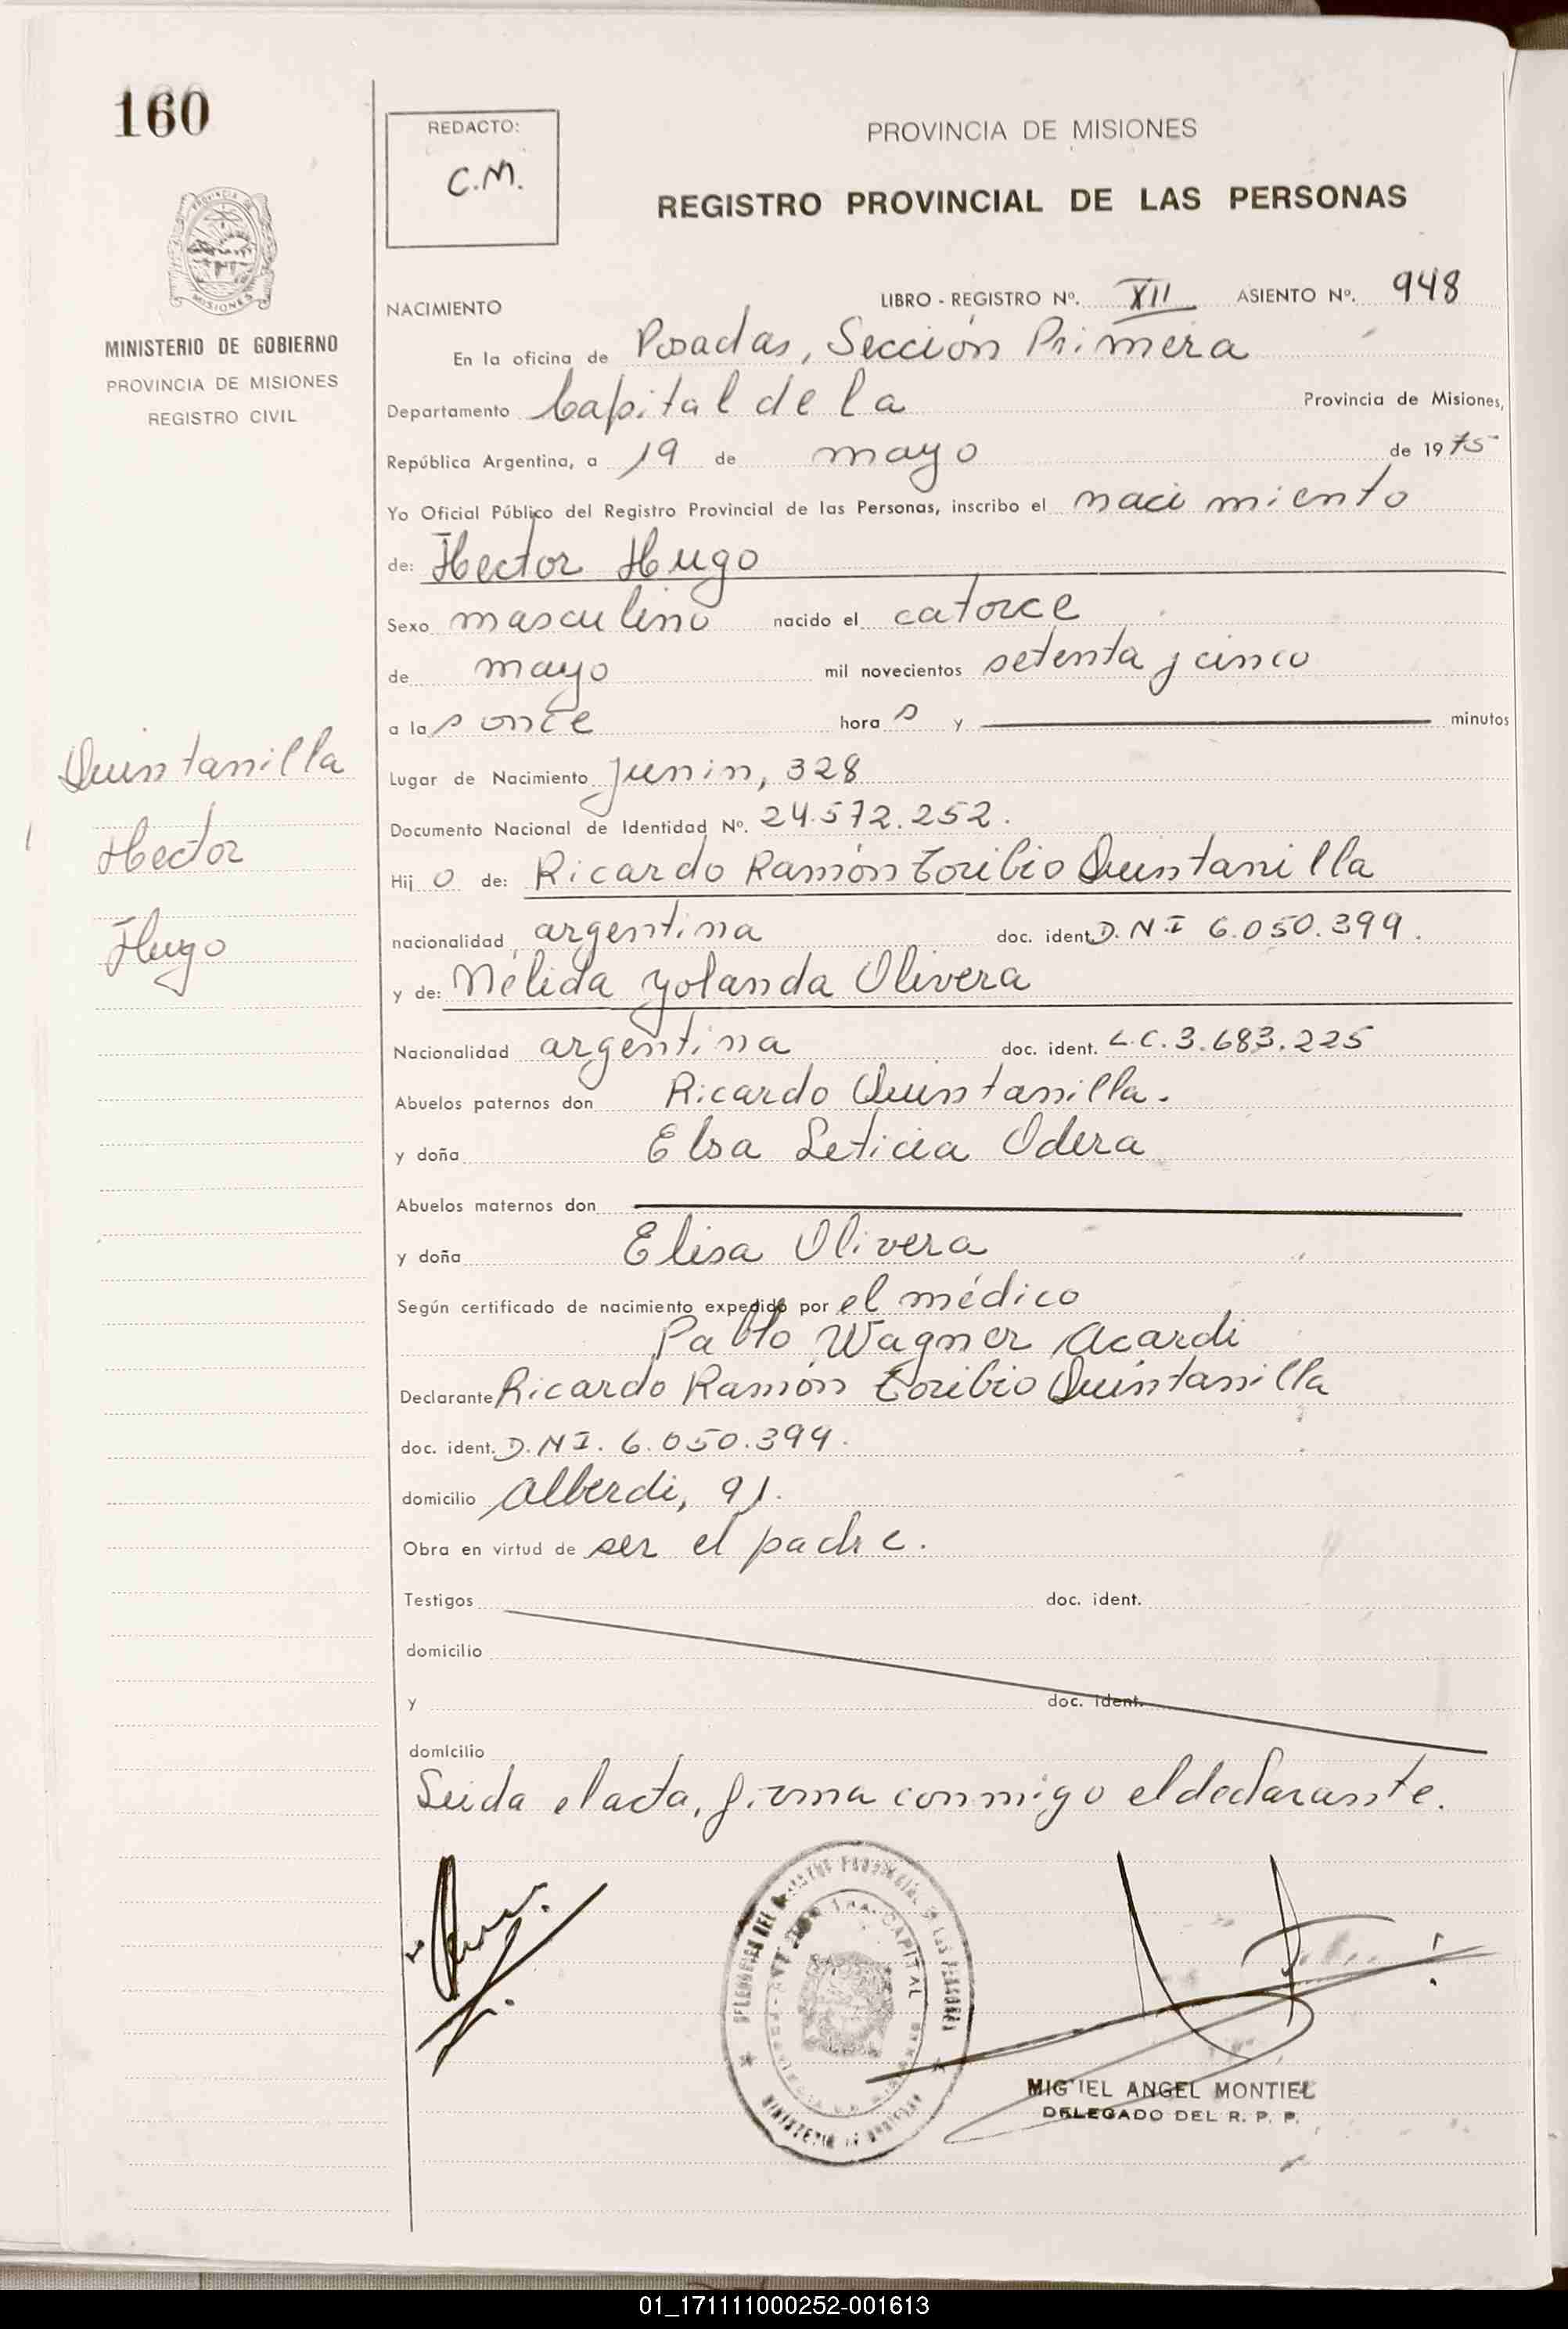 160
REDACTO:
C.M.
PROVINCIA DE MISIONES
REGISTRO PROVINCIAL DE LAS PERSONAS
MINISTERIO DE GOBIERNO
PROVINCIA DE MISIONES
REGISTRO CIVIL
NACIMIENTO LIBRO - REGISTRO Nº. XII ASIENTO Nº. 948
En la oficina de Posadas, Sección Primera
Departamento Capital de la Provincia de Misiones,
República Argentina, a 19 de mayo de 1975
Yo Oficial Público del Registro Provincial de las Personas, inscribo el nacimiento
de: Hector Hugo
Sexo masculino nacido el catorce
de mayo mil novecientos setenta y cinco
a las once horas y minutos
Quintanilla
Hector
Hugo
Lugar de Nacimiento Junin, 328
Documento Nacional de Identidad Nº. 24.572.252.
Hijo de: Ricardo Ramón Toribio Quintanilla
nacionalidad argentina doc. ident. D.N.I 6.050.399.
y de: Nélida Yolanda Olivera
Nacionalidad argentina doc. ident. L.C. 3.683.225
Abuelos paternos don Ricardo Quintanilla.
y doña Elsa Leticia Odera
Abuelos maternos don
y doña Elisa Olivera
Según certificado de nacimiento expedido por el médico
Pablo Wagner Acardi
Declarante Ricardo Ramón Toribio Quintanilla
doc. ident. D.N.I. 6.050.399.
domicilio Alberdi, 91.
Obra en virtud de ser el padre.
Testigos doc. ident.
domicilio
y doc. ident.
domicilio
Leida el acta, firma conmigo el declarante.
MIGUEL ANGEL MONTIEL
DELEGADO DEL R. P. P.
01_171111000252-001613